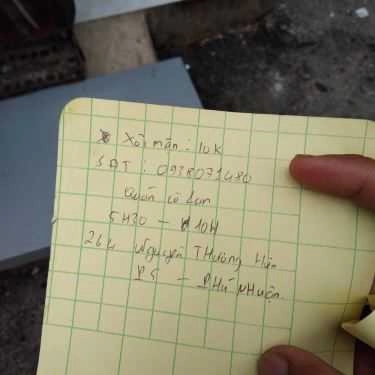 Xôi mặn : 10K
SĐT : 0938071480
Quán cô Lan
5H30 - 10H
264 Nguyễn Thượng Hiền
P5 - PHÚ NHUẬN.